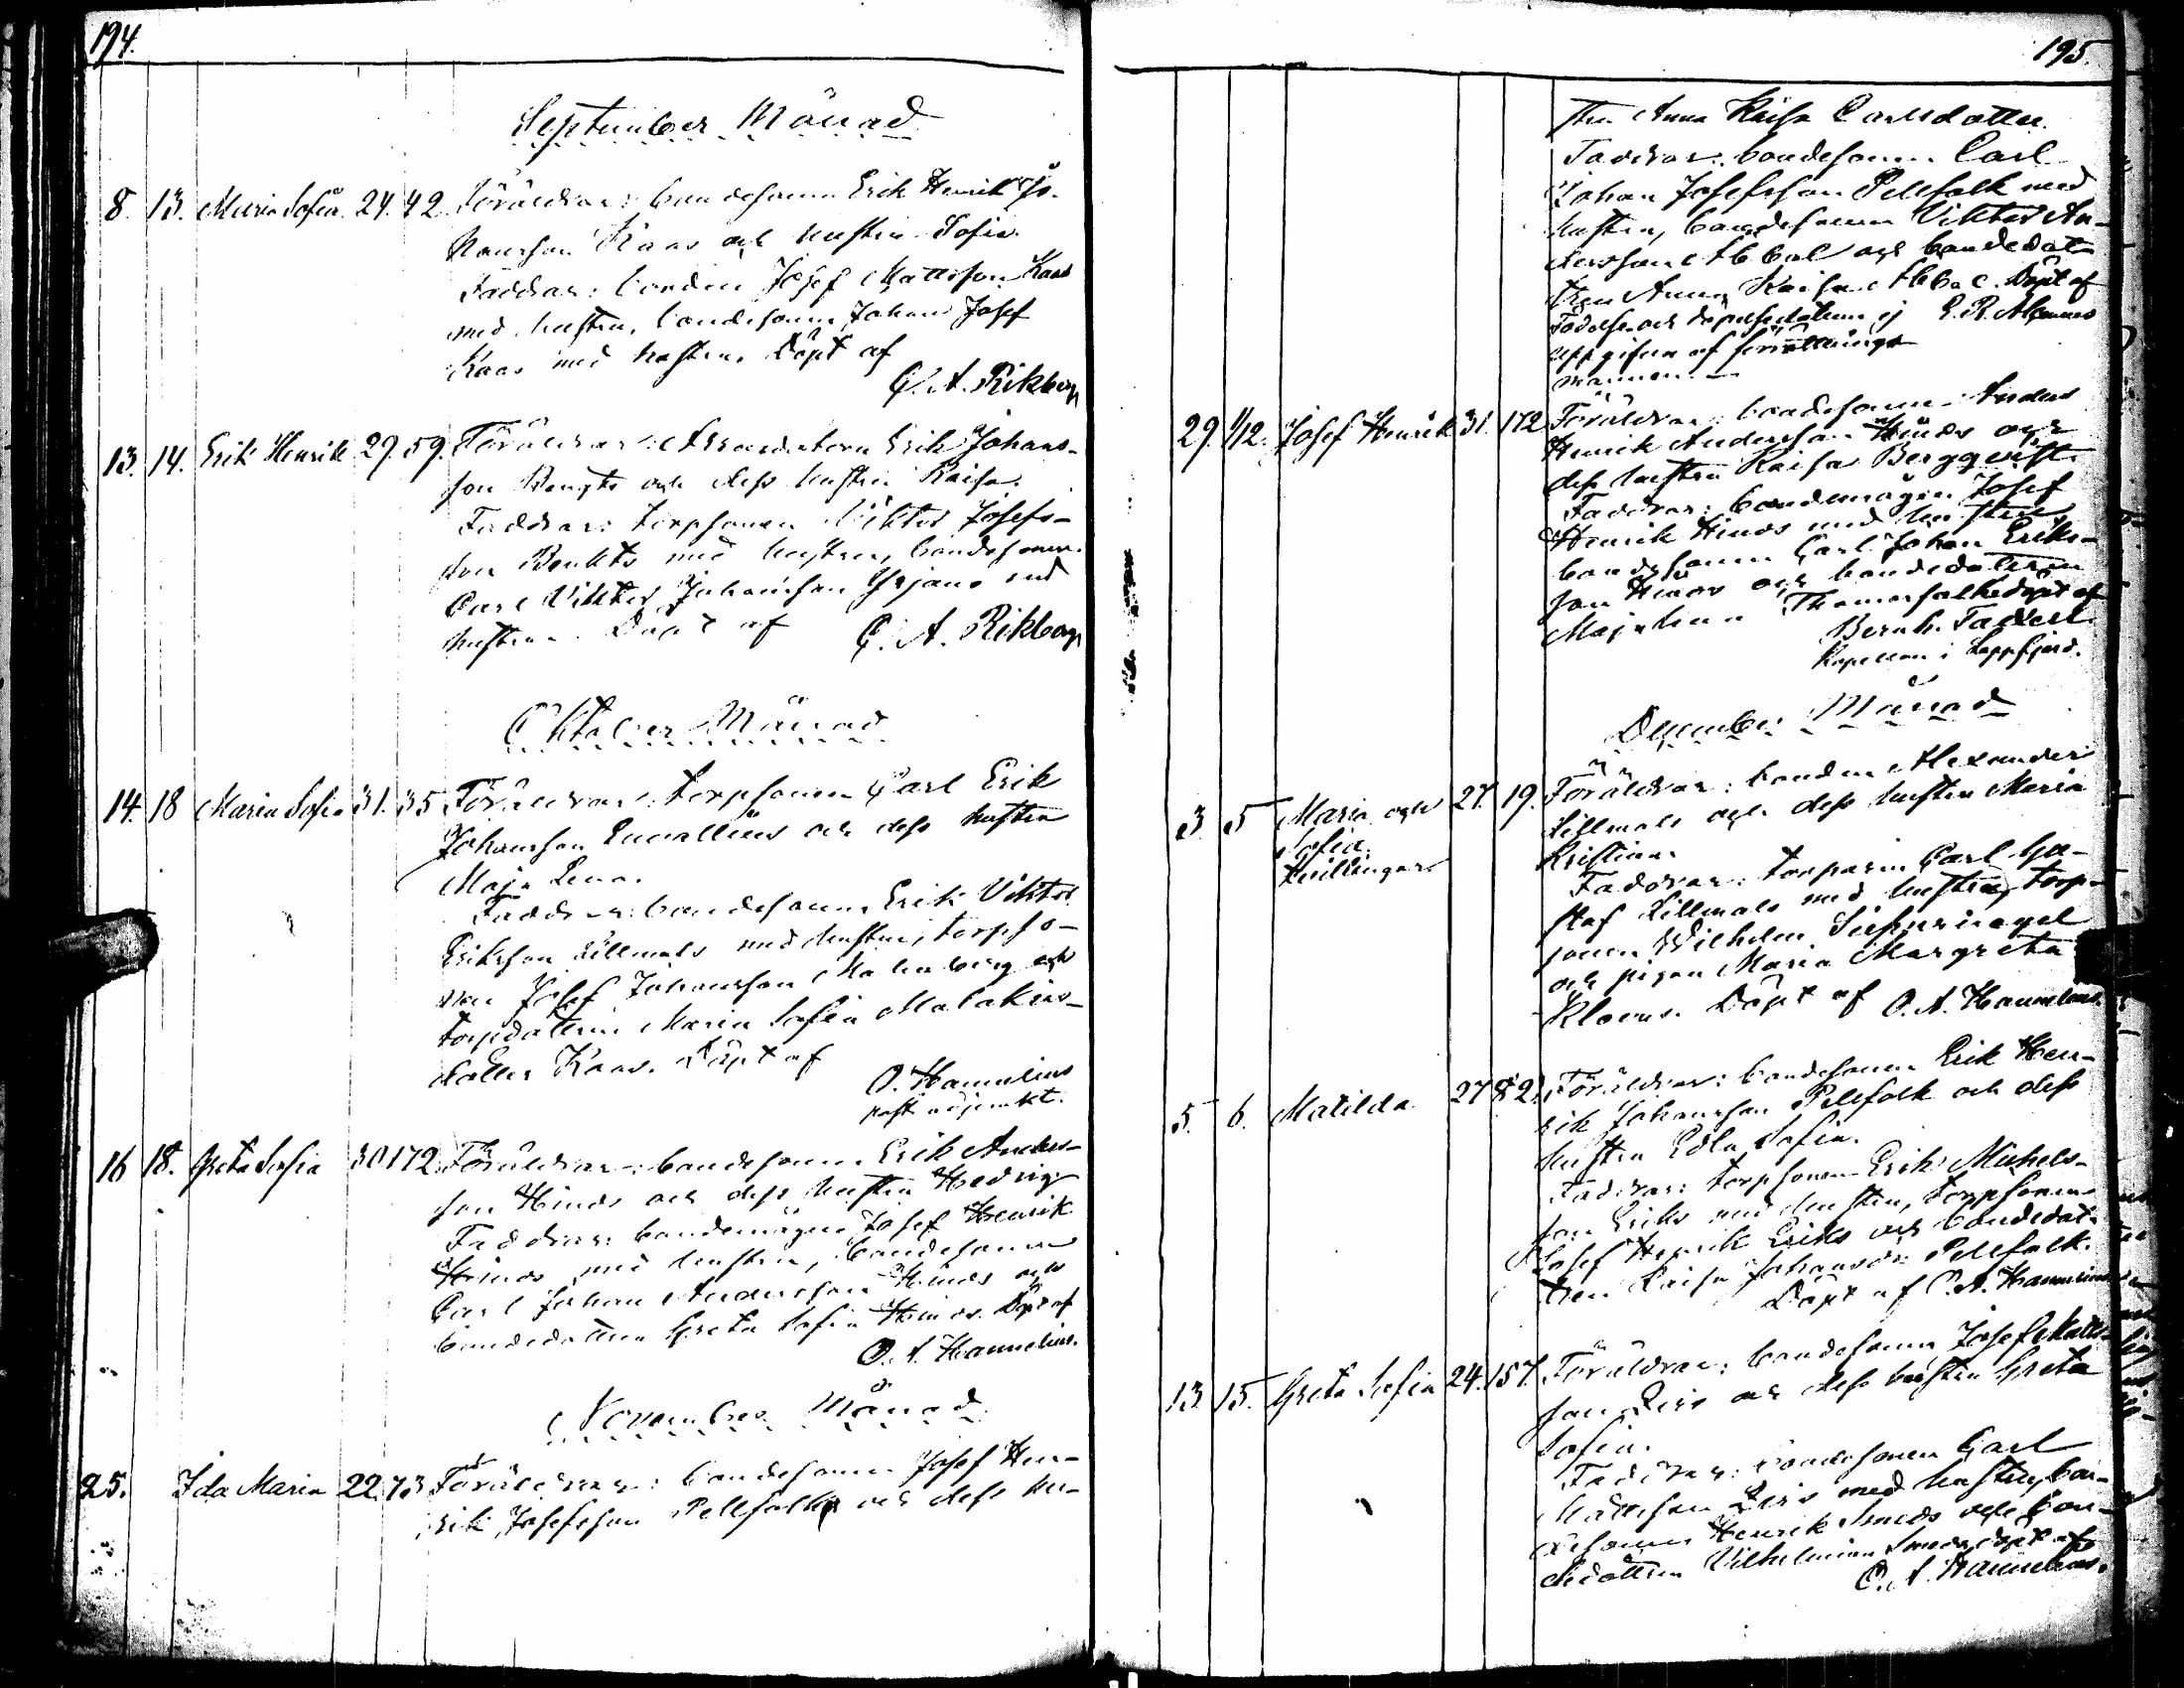 194.
September Månad
8. 13. Maria Sofia. 24. 42. Föräldrar: bondesonen Erik Henrik Jo-
hansson Kaas och hustru Sofia.
Faddrar: bonden Josef Mattsson Kaas
med hustru, bondesonen Johan Josef
Kaas med hustru. Döpt af
C. A. Rikberg
13. 14. Erik Henrik 29. 59. Föräldrar: Arrendatorn Erik Johans-
son Bengts och dess hustru Kaisa.
Faddrar: torpsonen Viktor Josefs-
son Benkts med hustru, bondesonen
Carl Viktor Johansson Yrjans med
hustru. Döpt af
C. A. Rikberg
Oktober Månad
14. 18 Maria Sofia 31. 35 Föräldrar: torpsonen Carl Erik
Johansson och dess hustru
Maja Lena.
Faddrar: bondesonen Erik Viktor
Eriksson Lillmals med hustru, torpso-
nen Josef Johansson Malmberg och
torpdottern Maria Sofia Malakias-
dotter Kaas. Döpt af
O. Hannelius
past. adjunkt.
16 18. Greta Sofia 30 172 Föräldrar: bondesonen Erik Anders-
son Hinds och dess hustru Hedvig
Faddrar: bondemågen Josef Henrik
Hinds med hustru, bondesonen
Carl Johan Andersson Hinds och
bondedottern Greta Sofia Hinds. Döpt af
O. A. Hannelius.
November Månad
25. Ida Maria 22. 73 Föräldrar: bondesonen Josef Hen-
rik Josefsson Pellfolk och dess hu-
195.
stru Anna Kaisa Carlsdotter.
Faddrar: bondesonen Carl
Johan Josefsson Pellfolk med
hustru, bondesonen Viktor An-
dersson Abbal och bondedot-
tren Anna Kaisa Abbal. Döpt af
Födelse och döpelsedatum ej E. R. Alcenius
uppgifven af förrättnings-
mannen.
29. 1/12. Josef Henrik 31. 172 Föräldrar: bondesonen Anders
Henrik Andersson Hinds och
dess hustru Kaisa Bergqvist.
Faddrar: bondemågen Josef
Henrik Hinds med hustru
bondesonen Carl Johan Eriks-
son Hinds och bondedottren
Maja Lena Thomasfolk döpt af
Bernh. Taxell
Kapellan i Lappfjärd.
December Månad
3. 5 Maria och 27. 19. Föräldrar: bonden Alexander
Sofia Lillmals och dess hustru Maria
tvillingar Kristina.
Faddrar: torparen Carl Gu-
staf Lillmals med hustru, torp-
sonen Wilhelm
och pigan Maria Margreta
Klaarus. Döpt af O. A. Hannelius.
5. 6. Matilda 27 82 Föräldrar: bondesonen Erik Hen-
rik Johansson Pellfolk och dess
hustru Edla Sofia.
Faddrar: torpsonen Erik Michels-
son Eriks med hustru, torpsonen
Josef Henrik Eriks och bondedot-
tren Kaisa Johansdr Pellfolk.
Döpt af O. A. Hannelius
13. 15. Greta Sofia 24. 157. Föräldrar: bondesonen Josef Matts-
son Lirs och dess hustru Greta
Sofia.
Faddrar: bondesonen Carl
Mattsson Lirs med hustru, bon-
desonen Henrik Smeds och bon-
dedottren Vilhelmina Smeds, döpt af
O. A. Hannelius.